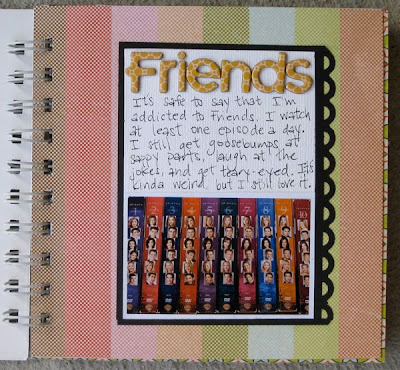 Friends
It's safe to say that I'm
addicted to Friends. I watch
at least one episode a day.
I still get goosebumps at
sappy parts, laugh at the
jokes, and get teary-eyed. It's
kinda weird but I still love it.
1 2 3 4 5 6 7 8 9 10
DVD DVD DVD DVD DVD DVD